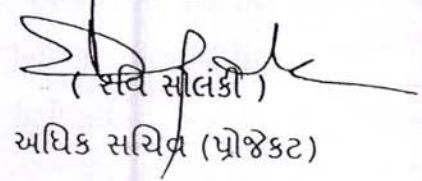 ( રવિ સોલંકી )
અધિક સચિવ (પ્રોજેકટ)